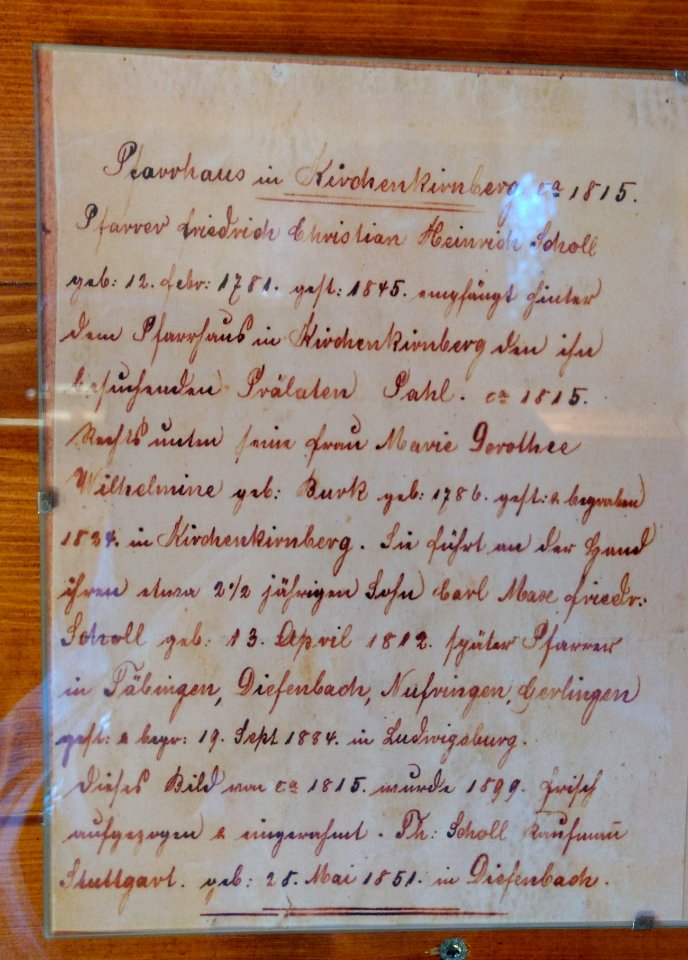 Pfarrhaus in Kirchenkirnberg ca 1815.
Pfarrer Friedrich Christian Heinrich Scholl
geb: 12. Febr: 1781. gest: 1845. empfängt hinter
dem Pfarrhaus in Kirchenkirnberg den ihn
besuchenden Prälaten Pahl. ca 1815.
Rechts unten seine Frau Marie Dorothee
Wilhelmine geb: Burk geb: 1786. gest: & begraben
1824. in Kirchenkirnberg. Sie führt an der Hand
ihren etwa 2 1/2 jährigen Sohn Carl Max Friedr:
Scholl geb: 13. April 1812. später Pfarrer
in Täbingen, Diefenbach, Nufringen, Gerlingen
gest: & begr: 19. Sept 1884. in Ludwigsburg.
Dieses Bild von ca 1815. wurde 1899. frisch
aufgezogen & eingerahmt. Th: Scholl Kaufmañ
Stuttgart. geb: 28. Mai 1851. in Diefenbach.